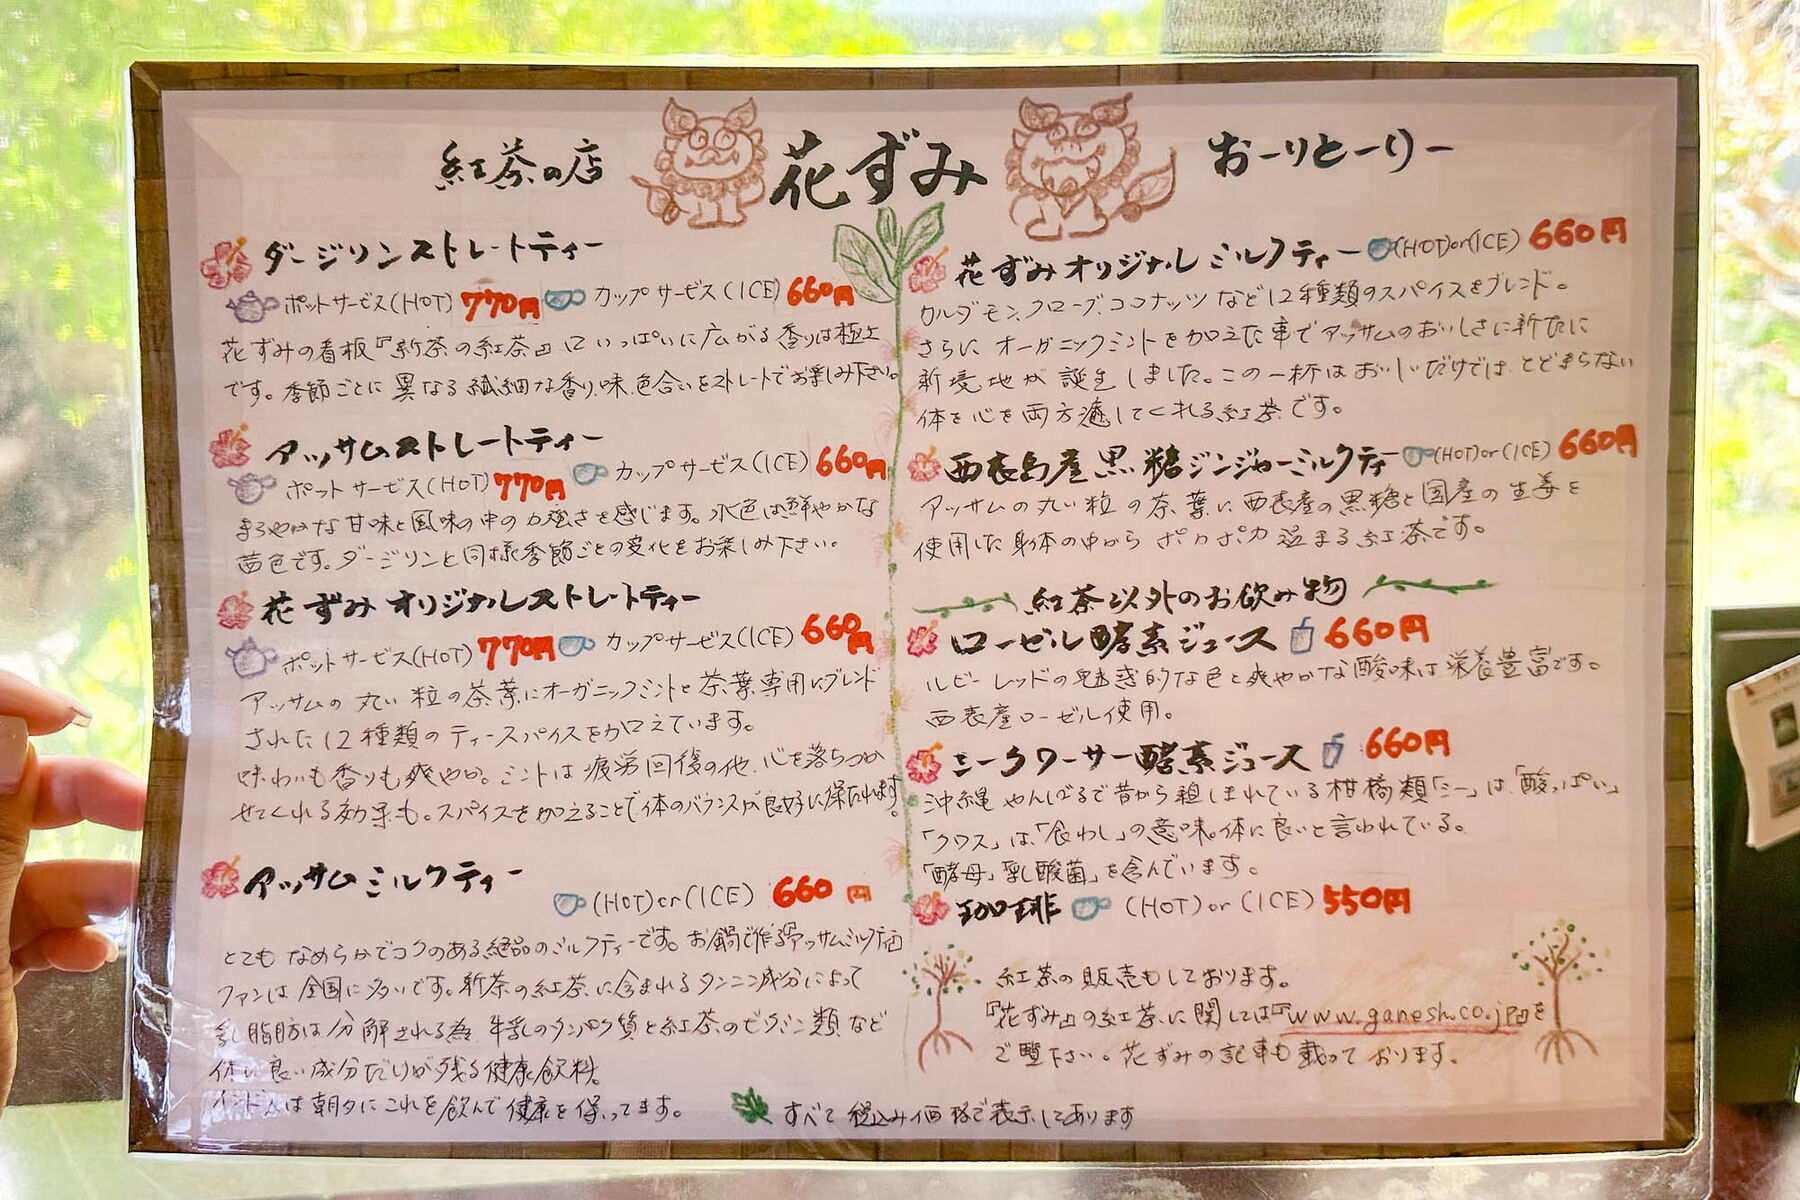 紅茶の店 花ずみ おーりとーりー
ダージリンストレートティー
ポットサービス(HOT) 770円 カップサービス(ICE) 660円
花ずみの看板『新茶の紅茶』口いっぱいに広がる香りは極上
です。季節ごとに異なる繊細な香り、味、色合いをストレートでお楽しみ下さい。
アッサムストレートティー
ポットサービス(HOT) 770円 カップサービス(ICE) 660円
まろやかな甘味と風味の中の力強さを感じます。水色は鮮やかな
茜色です。ダージリンと同様季節ごとの変化をお楽しみ下さい。
花ずみオリジナルストレートティー
ポットサービス(HOT) 770円 カップサービス(ICE) 660円
アッサムの丸い粒の茶葉にオーガニックミントと茶葉専用にブレンド
された12種類のティースパイスを加えています。
味わいも香りも爽やか。ミントは疲労回復の他、心を落ちつか
せてくれる効果も。スパイスを加えることで体のバランスが良好に保たれます。
アッサムミルクティー
(HOT)or(ICE) 660円
とてもなめらかでコクのある絶品のミルクティーです。お鍋で作るアッサムミルクティー
ファンは全国に多いです。新茶の紅茶に含まれるタンニン成分によって
乳脂肪は分解される為、牛乳のタンパク質と紅茶のビタミン類など
体に良い成分だけが残る健康飲料。
インド人は朝夕にこれを飲んで健康を保ってます。
花ずみオリジナルミルクティー (HOT)or(ICE) 660円
カルダモン、クローブ、ココナッツなど12種類のスパイスをブレンド。
さらにオーガニックミントを加えた事でアッサムのおいしさに新たに
新境地が誕生しました。この一杯はおいしいだけではとどまらない
体を心を両方癒してくれる紅茶です。
西表島産黒糖ジンジャーミルクティ (HOT)or(ICE) 660円
アッサムの丸い粒の茶葉に西表産の黒糖と国産の生姜を
使用した身体の中からポカポカ温まる紅茶です。
紅茶以外のお飲み物
ローゼル酵素ジュース 660円
ルビーレッドの魅惑的な色と爽やかな酸味は栄養豊富です。
西表産ローゼル使用。
シークワーサー酵素ジュース 660円
沖縄やんばるで昔から親しまれている柑橘類「シー」は、「酸っぱい」
「クワス」は、「食わし」の意味。体に良いと言われている。
「酵母」「乳酸菌」を含んでいます。
珈琲 (HOT)or(ICE) 550円
紅茶の販売もしております。
『花ずみ』の紅茶に関しては『www.ganesh.co.jp』を
ご覧下さい。花ずみの記事も載っております。
すべて税込み価格で表示してあります